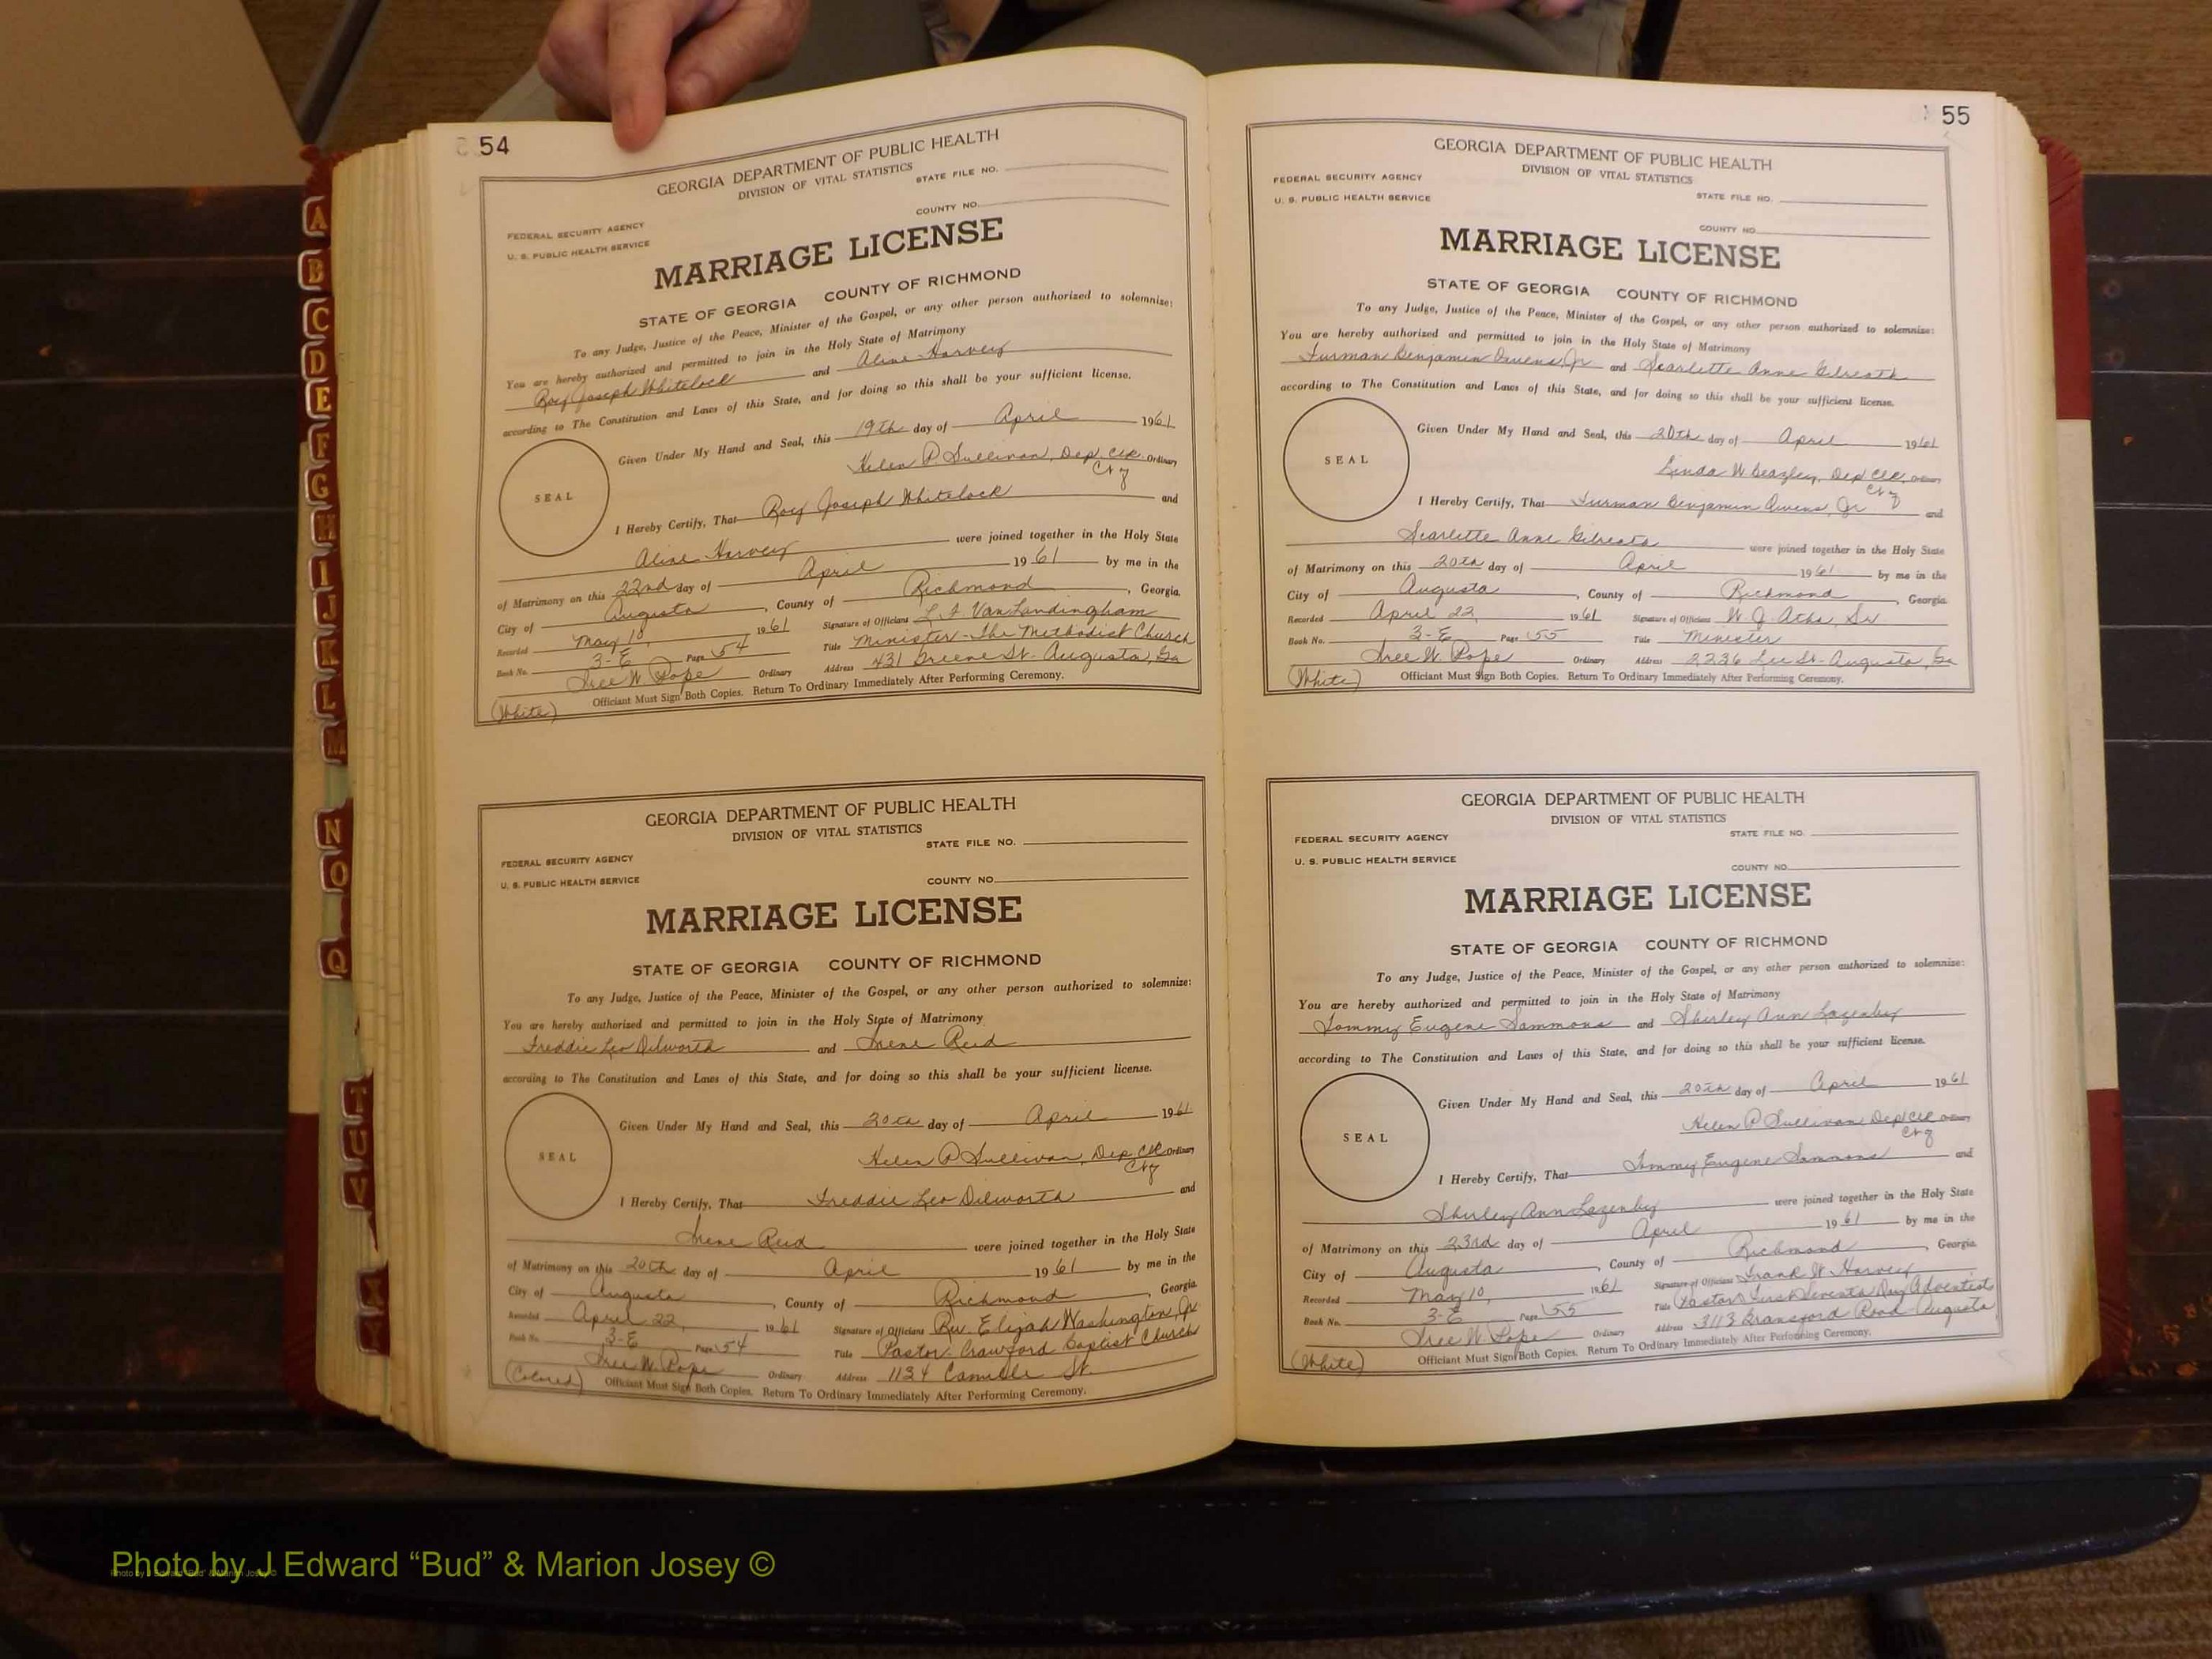 54
GEORGIA DEPARTMENT OF PUBLIC HEALTH
DIVISION OF VITAL STATISTICS
STATE FILE NO.
FEDERAL SECURITY AGENCY
COUNTY NO.
U. S. PUBLIC HEALTH SERVICE
MARRIAGE LICENSE
STATE OF GEORGIA COUNTY OF RICHMOND
To any Judge, Justice of the Peace, Minister of the Gospel, or any other person authorized to solemnize:
You are hereby authorized and permitted to join in the Holy State of Matrimony
Roy Joseph Whitelock and Aline Harvey
according to The Constitution and Laws of this State, and for doing so this shall be your sufficient license.
Given Under My Hand and Seal, this 19th day of April 1961
Helen P Sullivan, Dep Clk Ordinary
SEAL
I Hereby Certify, That Roy Joseph Whitelock and
Aline Harvey were joined together in the Holy State
of Matrimony on this 22nd day of April 1961 by me in the
City of Augusta, County of Richmond, Georgia.
Recorded May 10 1961 Signature of Officiant Van Landingham
Book No. 3-E Page 54 Title Minister - The Methodist Church
Tree W. Pope Ordinary Address 431 Greene St. Augusta, Ga
Officiant Must Sign Both Copies. Return To Ordinary Immediately After Performing Ceremony.
(White)
GEORGIA DEPARTMENT OF PUBLIC HEALTH
DIVISION OF VITAL STATISTICS
STATE FILE NO.
FEDERAL SECURITY AGENCY
U. S. PUBLIC HEALTH SERVICE
COUNTY NO.
MARRIAGE LICENSE
STATE OF GEORGIA COUNTY OF RICHMOND
To any Judge, Justice of the Peace, Minister of the Gospel, or any other person authorized to solemnize:
You are hereby authorized and permitted to join in the Holy State of Matrimony
Freddie Leo Dilworth and Irene Reid
according to The Constitution and Laws of this State, and for doing so this shall be your sufficient license.
Given Under My Hand and Seal, this 20th day of April 1961
Helen P Sullivan, Dep Clk Ordinary
SEAL
I Hereby Certify, That Freddie Leo Dilworth and
Irene Reid were joined together in the Holy State
of Matrimony on this 20th day of April 1961 by me in the
City of Augusta, County of Richmond, Georgia.
Recorded April 22, 1961 Signature of Officiant Rev. Elijah Washington, Jr.
Book No. 3-E Page 54 Title Pastor Crawford Baptist Church
Tree W. Pope Ordinary Address 1134 Camille St.
(Colored) Officiant Must Sign Both Copies. Return To Ordinary Immediately After Performing Ceremony.
55
GEORGIA DEPARTMENT OF PUBLIC HEALTH
DIVISION OF VITAL STATISTICS
FEDERAL SECURITY AGENCY
STATE FILE NO.
U. S. PUBLIC HEALTH SERVICE
COUNTY NO.
MARRIAGE LICENSE
STATE OF GEORGIA COUNTY OF RICHMOND
To any Judge, Justice of the Peace, Minister of the Gospel, or any other person authorized to solemnize:
You are hereby authorized and permitted to join in the Holy State of Matrimony
Furman Benjamin Owens, Jr and Scarlette Anne Gilreath
according to The Constitution and Laws of this State, and for doing so this shall be your sufficient license.
Given Under My Hand and Seal, this 20th day of April 1961
SEAL
Linda W Beazley, Dep Clk, Ordinary
I Hereby Certify, That Furman Benjamin Owens, Jr and
Scarlette Anne Gilreath were joined together in the Holy State
of Matrimony on this 20th day of April 1961 by me in the
City of Augusta, County of Richmond, Georgia
Recorded April 22, 1961 Signature of Officiant W. J. Sr.
Book No. 3-E Page 55 Title Minister
Tree W. Pope Ordinary Address 2236 Lee St. Augusta, Ga
(White) Officiant Must Sign Both Copies. Return To Ordinary Immediately After Performing Ceremony.
GEORGIA DEPARTMENT OF PUBLIC HEALTH
DIVISION OF VITAL STATISTICS
FEDERAL SECURITY AGENCY
STATE FILE NO.
U. S. PUBLIC HEALTH SERVICE
COUNTY NO.
MARRIAGE LICENSE
STATE OF GEORGIA COUNTY OF RICHMOND
To any Judge, Justice of the Peace, Minister of the Gospel, or any other person authorized to solemnize:
You are hereby authorized and permitted to join in the Holy State of Matrimony
Tommy Eugene Sammons and Shirley Ann Lazenby
according to The Constitution and Laws of this State, and for doing so this shall be your sufficient license.
Given Under My Hand and Seal, this 20th day of April 1961
Helen P Sullivan Dep Clk Ordinary
SEAL
I Hereby Certify, That Tommy Eugene Sammons and
Shirley Ann Lazenby were joined together in the Holy State
of Matrimony on this 23rd day of April 1961 by me in the
City of Augusta, County of Richmond, Georgia.
Recorded May 10, 1961 Signature of Officiant Frank W. Harvey
Book No. 3-E Page 55 Title Pastor First Seventh Day Adventist
Tree W. Pope Ordinary Address 3113 Bransford Road Augusta
(White) Officiant Must Sign Both Copies. Return To Ordinary Immediately After Performing Ceremony.
A
B
C
D
E
F
G
H
I
J
K
L
M
N
O
Q
T
U
V
Y
Photo by J Edward “Bud” & Marion Josey ©
Photo by J Edward “Bud” & Marion Josey ©